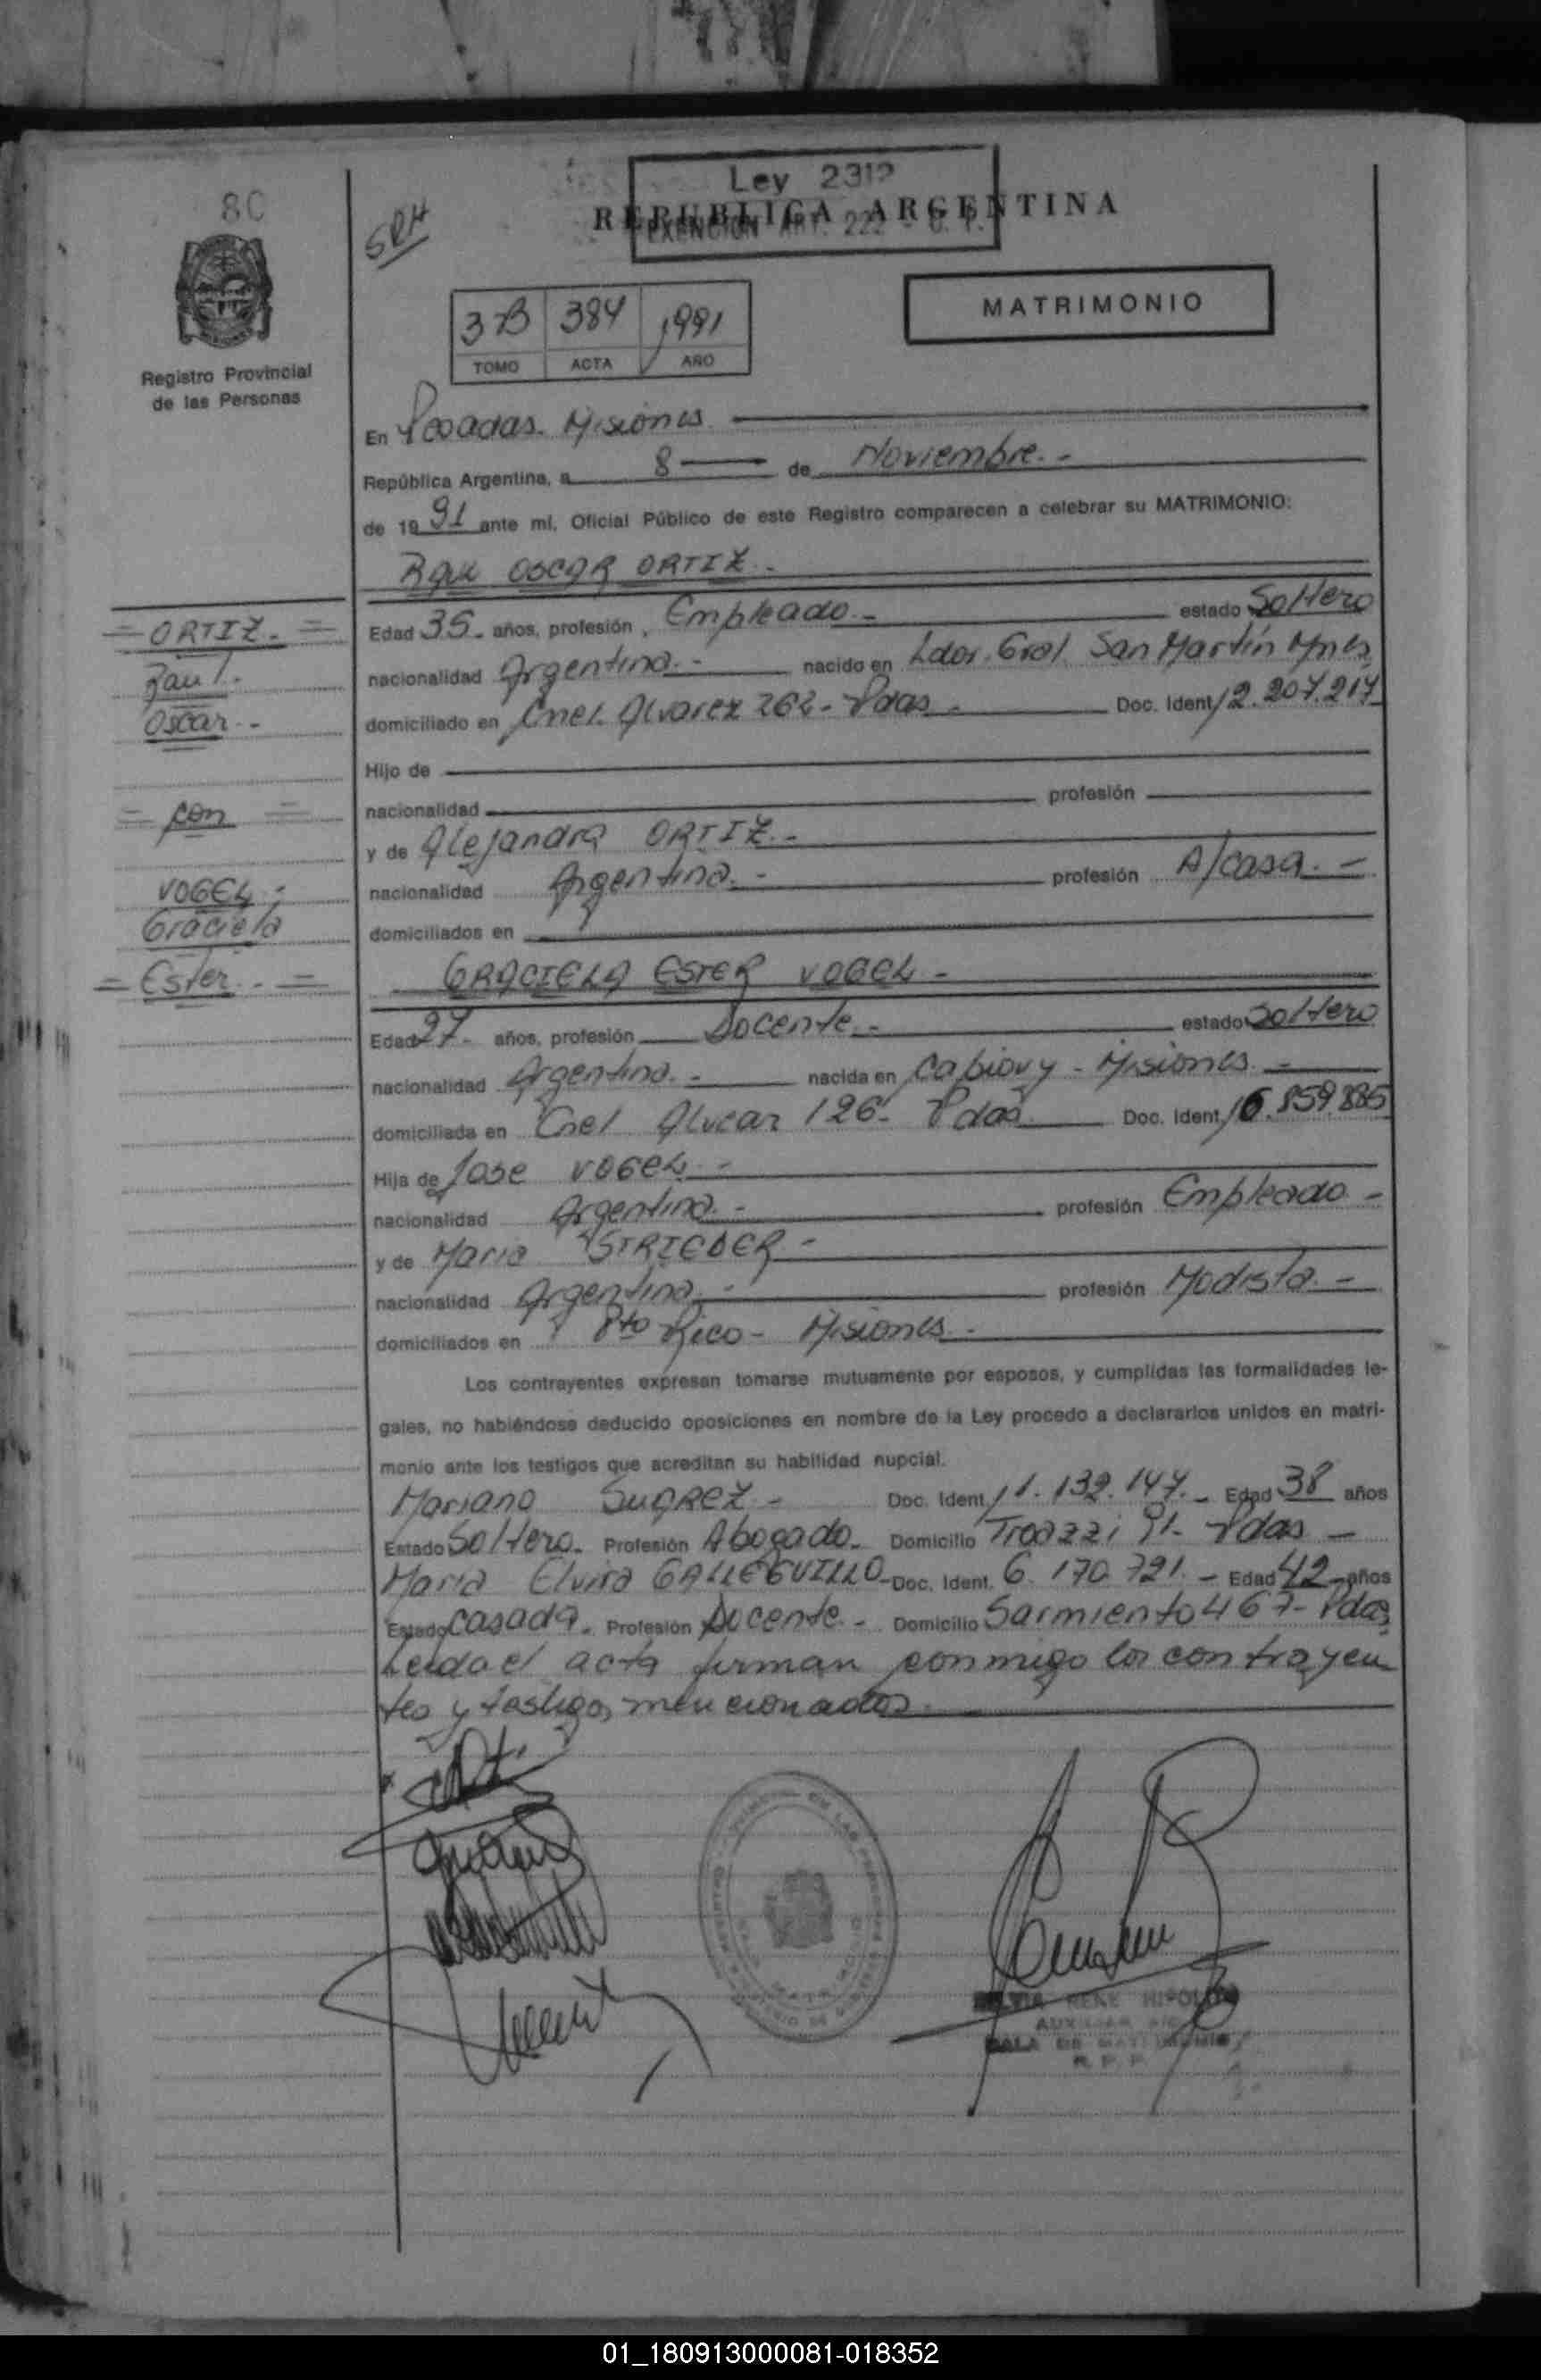 80
SRH
Ley 2312
REPUBLICA ARGENTINA
EXENCION ART. 222 -
3B 384 1991
TOMO ACTA AÑO
MATRIMONIO
Registro Provincial
de las Personas
En Posadas. Misiones
República Argentina, a 8 de Noviembre.-
de 1991 ante mí, Oficial Público de este Registro comparecen a celebrar su MATRIMONIO:
Raul OSCAR ORTIZ.-
= ORTIZ.- =
Raul.
Oscar.-
= con =
VOGEL.-
Graciela
= Ester.- =
Edad 35.- años, profesión, Empleado.- estado Soltero
nacionalidad Argentina.- nacido en Ldor. Gral. San Martín Mnes
domiciliado en Cnel. Alvarez 262.- Pdas.- Doc. Ident. 12.207.217
Hijo de
nacionalidad profesión
y de Alejandra ORTIZ.-
nacionalidad Argentina.- profesión A/casa.-
domiciliados en
GRACIELA ESTER VOGEL.-
Edad 27.- años, profesión Docente.- estado Soltero
nacionalidad Argentina.- nacida en Capiovy - Misiones.-
domiciliada en Cnel 126.- Pdas Doc. Ident. 16.859.885
Hija de Jose VOGEL.-
nacionalidad Argentina.- profesión Empleado.-
y de Maria STRIEDER.-
nacionalidad Argentina.- profesión Modista.-
domiciliados en Pto Rico - Misiones.-
Los contrayentes expresan tomarse mutuamente por esposos, y cumplidas las formalidades le-
gales, no habiéndose deducido oposiciones en nombre de la Ley procedo a declararlos unidos en matri-
monio ante los testigos que acreditan su habilidad nupcial.
Mariano SUAREZ.- Doc. Ident. 11.132.147.- Edad 38 años
Estado Soltero.- Profesión Abogado.- Domicilio 91.- Pdas.-
Maria Elvira GALLEGUILLO.- Doc. Ident. 6.170.721.- Edad 42.- años
Estado Casada.- Profesión Docente.- Domicilio Sarmiento 467.- Pdas
Leida el acta firman conmigo los contrayen
tes y testigos mencionados.
RENE HIPOLITO
AUXILIAR
SALA DE MATRIMONIO
R. P. P.
01_180913000081-018352